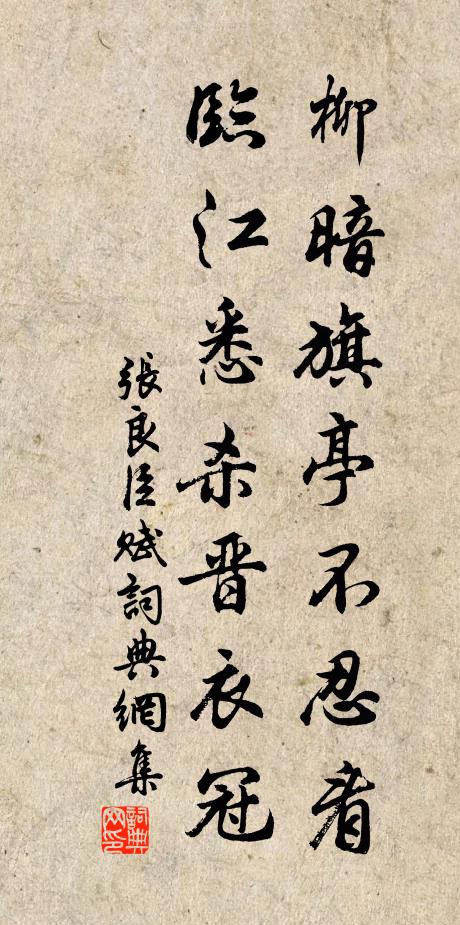 柳暗旗亭不忍看
臨江悉杀晋衣冠
張良臣赋詞典網集
詞典网印